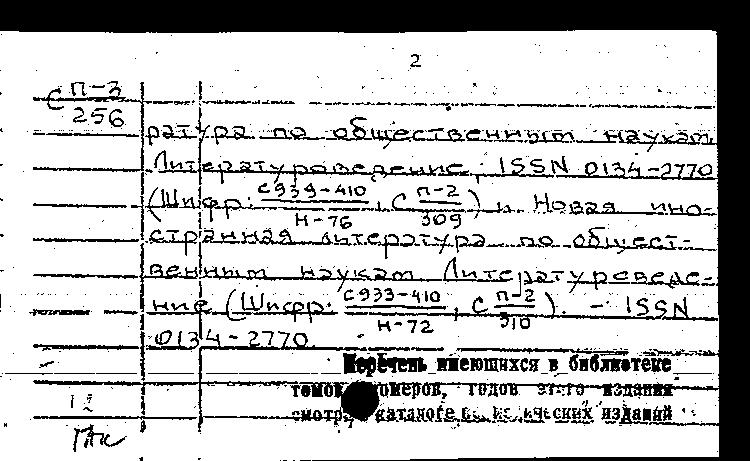 2
С П-3
256
ратура по общественным наукам.
Литературоведение, ISSN 0134-2770
(Шифр: С939-410 / Н-76, С П-2 / 309) и Новая ино-
странная литература по общест-
венным наукам. Литературоведе-
ние (Шифр: С933-410 / Н-72, С П-2 / 310). - ISSN
0134-2770.
Перечень имеющихся в библиотеке
томов, номеров, годов этого издания
смотри в каталоге изданий
12